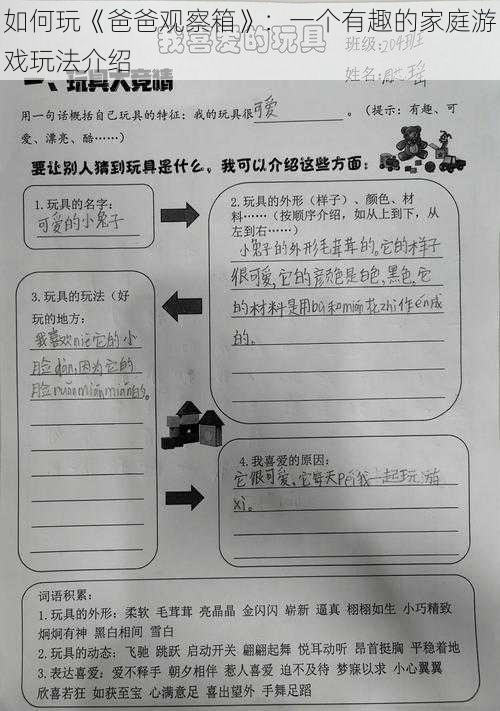 如何玩《爸爸观察箱》：一个有趣的家庭游
戏玩法介绍
我喜爱的玩具
班级：204班
姓名：
一、玩具大竞猜
用一句话概括自己玩具的特征：我的玩具很可爱。（提示：有趣、可
爱、漂亮、酷……）
要让别人猜到玩具是什么，我可以介绍这些方面：
1.玩具的名字：
可爱的小兔子
2.玩具的外形（样子）、颜色、材
料……（按顺序介绍，如从上到下，从
左到右……）
小兔子的外形毛茸茸的。它的样子
很可爱，它的颜色是白色，黑色。它
的材料是用bù和mián花zhi作én成
的。
3.玩具的玩法（好
玩的地方：
我喜欢niē它的小
脸dàn，因为它的
脸ruǎnmiánmián的。
4.我喜爱的原因：
它很可爱，它每天péi我一起玩游
xì。
词语积累：
1.玩具的外形：柔软 毛茸茸 亮晶晶 金闪闪 崭新 逼真 栩栩如生 小巧精致
炯炯有神 黑白相间 雪白
2.玩具的动态：飞驰 跳跃 启动开关 翩翩起舞 悦耳动听 昂首挺胸 平稳着地
3.表达喜爱：爱不释手 朝夕相伴 惹人喜爱 迫不及待 梦寐以求 小心翼翼
欣喜若狂 如获至宝 心满意足 喜出望外 手舞足蹈